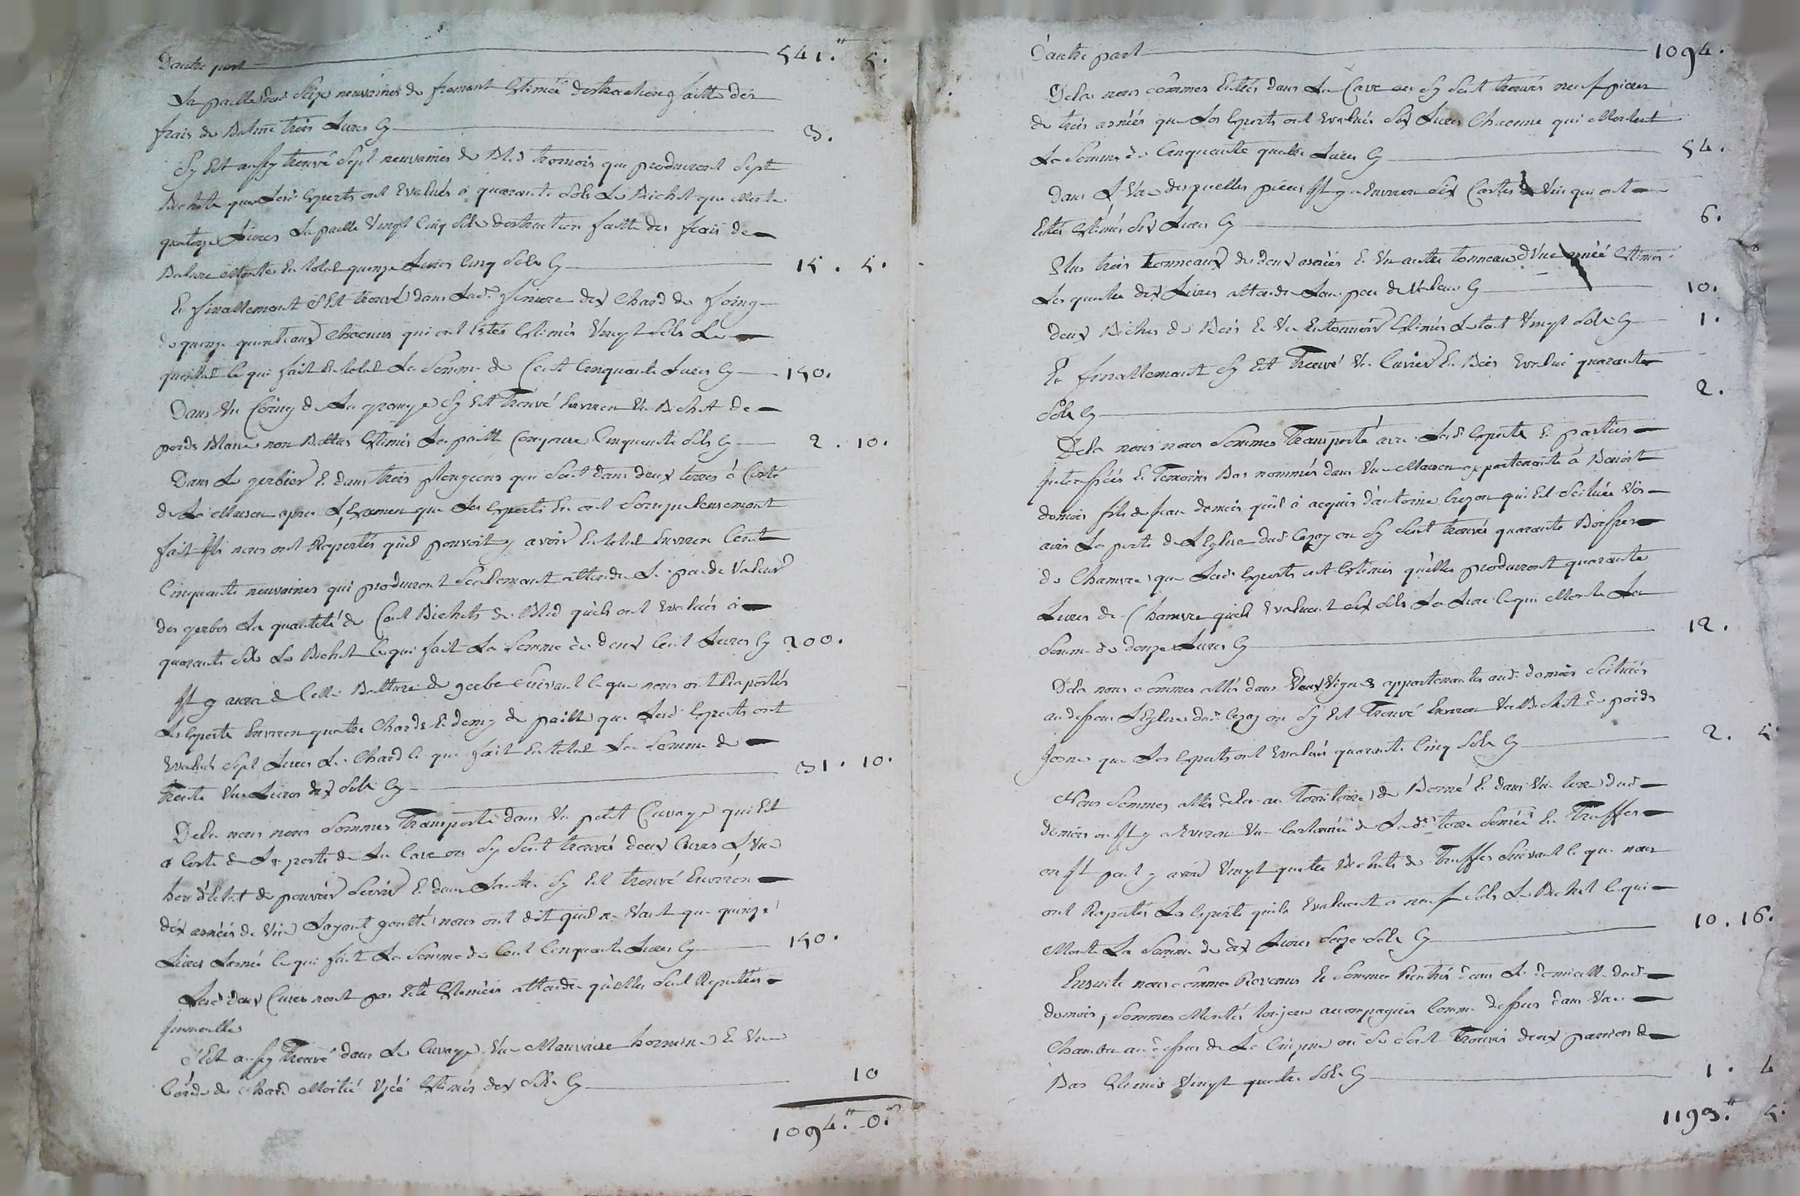 D'autre part 541.# 5.
La paille des seize neuvaines de froment Estimée destraction faitte des
frais de Batture trois Livres Cy 3.
S'y Est aussy trouvé sept neuvaines de Bled tremois qui produiront sept
Bichets que Lesd Experts ont Evalués à quarante sols Le Bichet qui monte
quatorze Livres La paille Vingt Cinq sols destraction faitte des frais de
Batture Monte En total quinze Livres Cinq sols Cy 15. 5.
Et finallement s'Est trouvé dans Lad. feniere dix Chard de foing
de quinze quintaux Chacuns qui ont Estés Estimés Vingt sols Le
quintal ce qui fait En total La somme de Cent Cinquante Livres Cy 150.
Dans Un Coing de La grange s'y Est trouvé Environ Un Bichet de
poids Blanc non Battus Estimés La paille Comprise Cinquante sols Cy 2. 10.
Dans Le gerbier Et dans trois plongeons qui sont dans deux terres à Costé
de La Maison apres L'Examen que Les Experts En ont scrupuleusement
fait Ils nous ont Raportés quil pouvoit y avoir En total Environ Cent
Cinquante neuvaines qui produiront seulement attendu Le peu de Valeur
des gerbes La quantité de Cent Bichets de Bled qu'ils ont Evalués à
quarante sols Le Bichet Ce qui fait La somme de deux Cent Livres Cy 200.
Il y aura de Cette Batture de gerbe suivant Ce que nous ont Raportés
Les Experts Environ quatre Chards Et demy de paille que Lesd Experts ont
Evalués sept Livres Le Chard Ce qui fait En total La somme de
trente Une Livres dix sols Cy 31. 10.
De La nous nous sommes Transporté dans Un petit Cuvage qui Est
a Costé de La porte de La Cave ou s'y sont trouvés deux Cuves L'Une
hors d'Etat de pouvoir servir Et dans L'autre s'y Est trouvé Environ
dix asnées de Vin Layant goutté nous ont dit quil ne Vaut que quinze
Livres L'asnée Ce qui fait La somme de Cent Cinquante Livres Cy 150.
Lesd deux Cuves n'ont pas Eté Estimées attendu qu'elles sont Reputées
Immeuble
s'Est aussy Trouvé dans Le Cuvage Une Mauvaise Et Une
Corde de Chard Moitié Usée Estimés dix sols Cy 10
1094.# 0.s
D'autre part 1094.
De La nous sommes Entrés dans La Cave ou s'y sont trouvés neuf pieces
de trois asnées que Les Experts ont Evalués Six Livres Chacune qui Montent
La Somme de Cinquante quatre Livres Cy 54.
Dans L'Une desquelles pieces Il y a Environ Six Cartes de Vin qui ont
Estés Estimés Six Livres Cy 6.
Plus trois tonneaux de deux asnées Et Un autre tonneau d'Une asnée Estimés
Les quatre dix Livres attendu Leur peu de Valeur Cy 10.
deux Biches de Bois Et Un Entonnoir Estimés Le tout Vingt sols Cy 1.
Et finallement s'y Est Trouvé Un Cuvier En Bois Evalué quarante
sols Cy 2.
De La nous nous sommes Transporté avec Lesd Experts Et parties
Interessées Et Temoins Bas nommés dans Une Maison appartenante à Benoit
demois fils de feu demois quil à acquis d'antoine Crepon qui Est scituée Vis
avis La porte de L'Eglise dud ou s'y sont trouvés quarante
de Chanvre que Lesd Experts ont Estimés qu'elles produiront quarante
Livres de Chanvre quils Evaluent Six sols La Livre Ce qui Monte La
somme de douze Livres Cy 12.
De La nous sommes allés dans deux Vignes appartenantes aud demois scituées
au dessous L'Eglise dud ou s'y Est Trouvé Environ Un Bichet de poids
Jeaune que Les Experts ont Evalué quarante Cinq sols Cy 2. 5.
Nous sommes allés de La au Territoire de Et dans Une terre dud
demois ou Il y a Environ Une de Lad. terre semée En Truffes
ou Il peut y avoir Vingt quatre Bichets de Truffes suivant Ce que nous
ont Raportés Les Experts quils Evaluent à neuf sols Le Bichet Ce qui
Monte La somme de dix Livres seize sols Cy 10. 16.
Ensuite nous sommes Revenus Et sommes Rentrés dans Le domicille dud
demois, sommes Montés toujours accompagnés Comme dessus dans Une
Chambre au dessus de La Cuisine ou se sont Trouvés deux paires de
Bas Estimés Vingt quatre sols Cy 1. 4
1193.# 5.